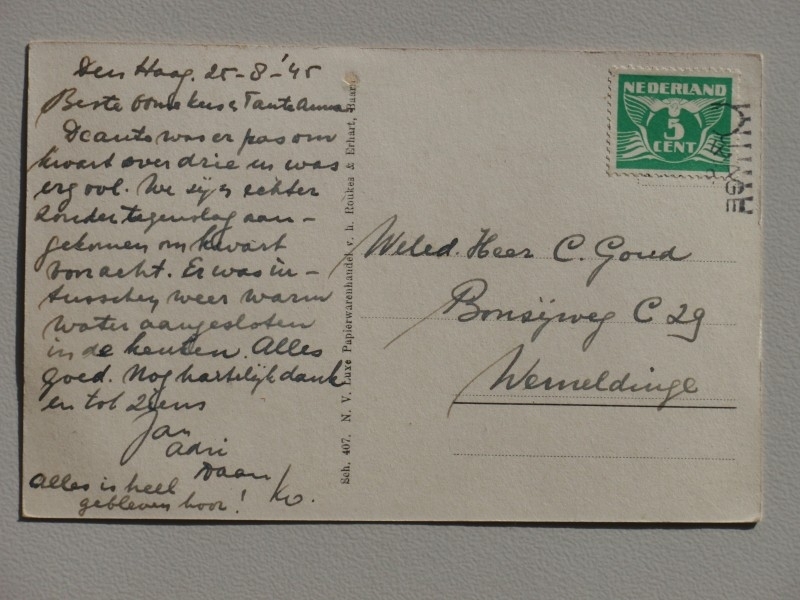 Den Haag. 25-8-'45
Beste Oome Kees en Tante Anna
De auto was er pas om
kwart over drie en was
erg vol. We zijn echter
zonder tegenslag aan-
gekomen om kwart
voor acht. Er was in-
tusschen weer warm
water aangesloten
in de keuken. Alles
goed. Nog hartelijk dank
en tot ziens
Jan
Adri
Daan
Ko.
Alles is heel
gebleven hoor!
Sch. 407. N. V. Luxe Papierwarenhandel v. h. Roukes & Erhart, Baarn
NEDERLAND
5
CENT
Weled. Heer C. Goud
Bonsijweg C 29
Wemeldinge